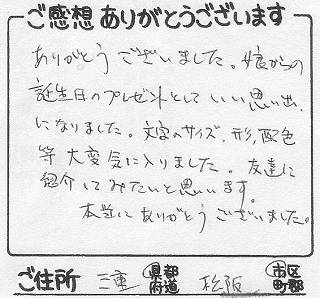 ご感想 ありがとうございます
ありがとうございました。娘からの
誕生日のプレゼントとしていい思い出
になりました。文字のサイズ、形、配色
等大変気に入りました。友達に
紹介してみたいと思います。
本当にありがとうございました。
ご住所 三重 都道府県 松阪 市区町郡